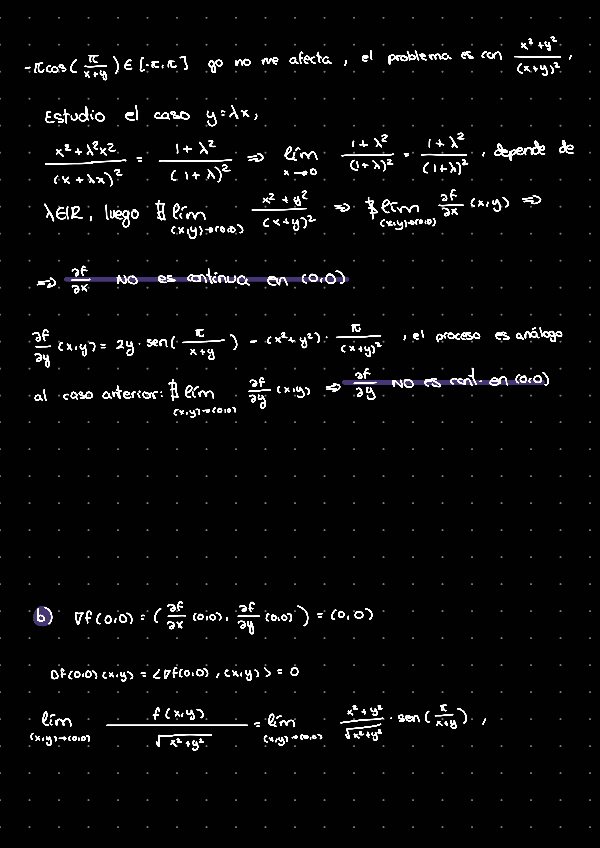 -π cos(π/(x+y)) ∈ [-π,π] go no me afecta, el problema es con (x²+y²)/(x+y)²,
Estudio el caso y=λx,
(x²+λ²x²)/(x+λx)² = (1+λ²)/(1+λ)² ⇒ lím x→0 (1+λ²)/(1+λ)² = (1+λ²)/(1+λ)², depende de
λ∈ℝ, luego ∄ lím (x,y)→(0,0) (x²+y²)/(x+y)² ⇒ ∄ lím (x,y)→(0,0) ∂f/∂x (x,y) ⇒
⇒ ∂f/∂x NO es continua en (0,0)
∂f/∂y (x,y) = 2y · sen(π/(x+y)) - (x²+y²) · π/(x+y)², el proceso es análogo
al caso anterior: ∄ lím (x,y)→(0,0) ∂f/∂y (x,y) ⇒ ∂f/∂y NO es cont. en (0,0)
b) ∇f(0,0) = (∂f/∂x (0,0), ∂f/∂y (0,0)) = (0,0)
Df(0,0)(x,y) = <∇f(0,0), (x,y)> = 0
lím (x,y)→(0,0) f(x,y)/√(x²+y²) = lím (x,y)→(0,0) (x²+y²)/√(x²+y²) · sen(π/(x+y)),